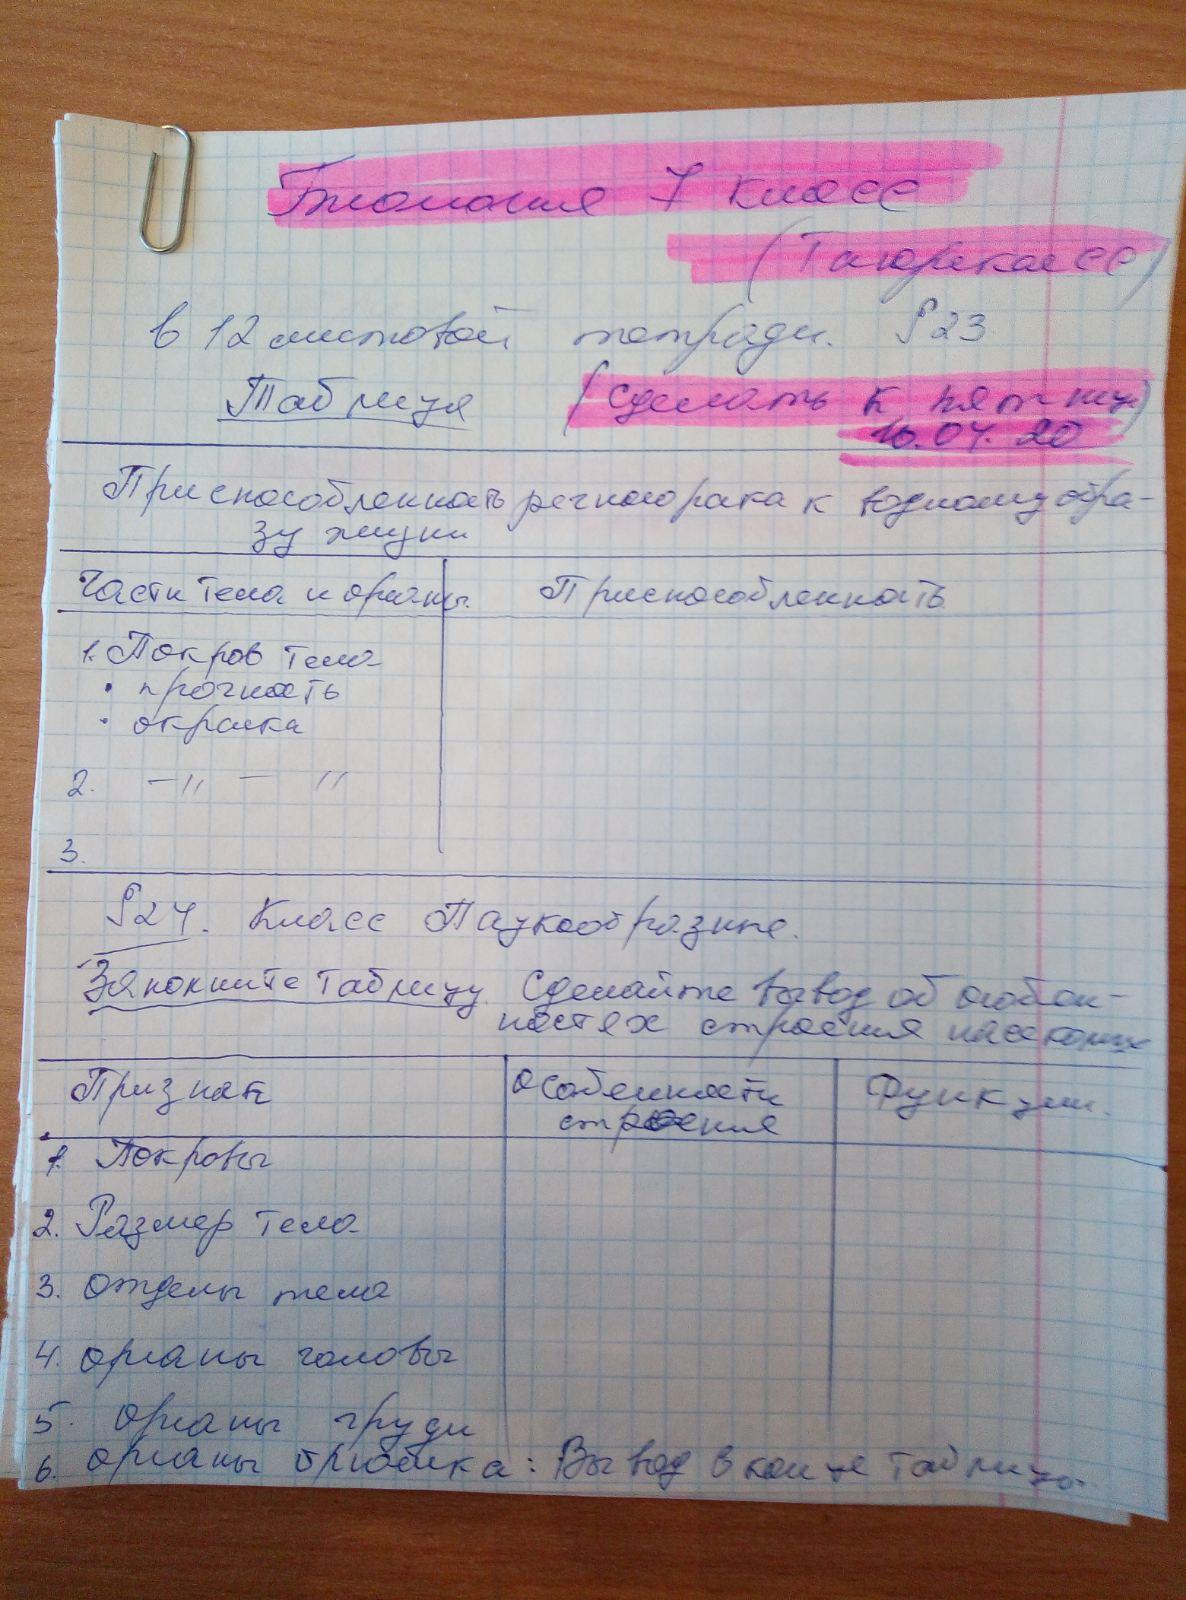 Биология 7 класс
(Тагарклассе)
в 12 листовой тетради. §23
Таблица (сделать к пятнице
10.04.20)
Приспособленность речного рака к водному обра-
зу жизни
Части тела и органы. Приспособленность
1. Покров тела
• прочность
• окраска
2. -"- "
3.
§24. Класс Паукообразные.
Заполните таблицу Сделайте вывод об особен-
ностях строения насекомых
Признак Особенности Функции.
строения
1. Покровы
2. Размер тела
3. отделы тела
4. органы головы
5. органы груди
6. органы брюшка: Вывод в конце таблицы.